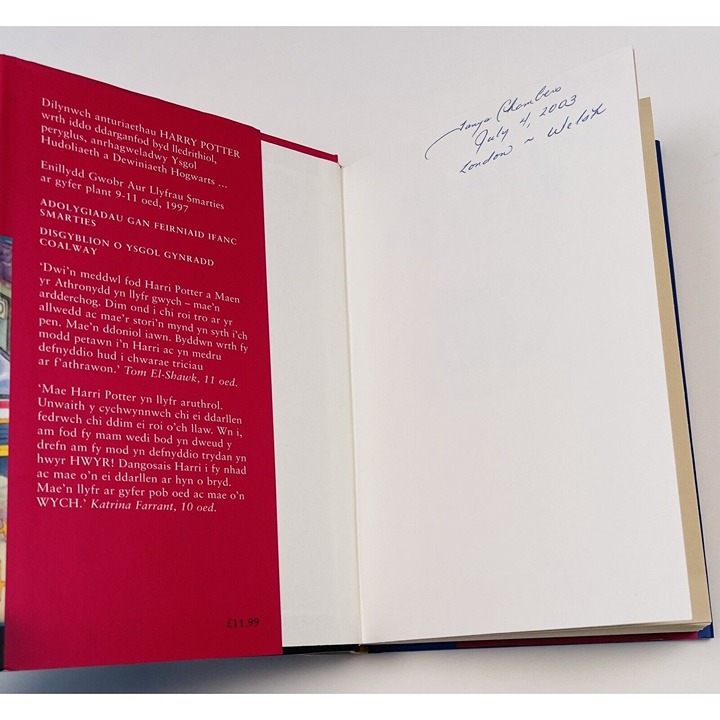 Dilynwch anturiaethau HARRY POTTER
wrth iddo ddarganfod byd lledrithiol,
peryglus, anrhagweladwy Ysgol
Hudoliaeth a Dewiniaeth Hogwarts ...
Enillydd Gwobr Aur Llyfrau Smarties
ar gyfer plant 9-11 oed, 1997
ADOLYGIADAU GAN FEIRNIAID IFANC
SMARTIES
DISGYBLION O YSGOL GYNRADD
COALWAY
‘Dwi’n meddwl fod Harri Potter a Maen
yr Athronydd yn llyfr gwych – mae’n
ardderchog. Dim ond i chi roi tro ar yr
allwedd ac mae’r stori’n mynd yn syth i’ch
pen. Mae’n ddoniol iawn. Byddwn wrth fy
modd petawn i’n Harri ac yn medru
defnyddio hud i chwarae triciau
ar f’athrawon.’ Tom El-Shawk, 11 oed.
‘Mae Harri Potter yn llyfr aruthrol.
Unwaith y cychwynnwch chi ei ddarllen
fedrwch chi ddim ei roi o’ch llaw. Wn i,
am fod fy mam wedi bod yn dweud y
drefn am fy mod yn defnyddio trydan yn
hwyr HWYR! Dangosais Harri i fy nhad
ac mae o’n ei ddarllen ar hyn o bryd.
Mae’n llyfr ar gyfer pob oed ac mae o’n
WYCH.’ Katrina Farrant, 10 oed.
£11.99
Tanya Chambers
July 4, 2003
London ~ Welsh